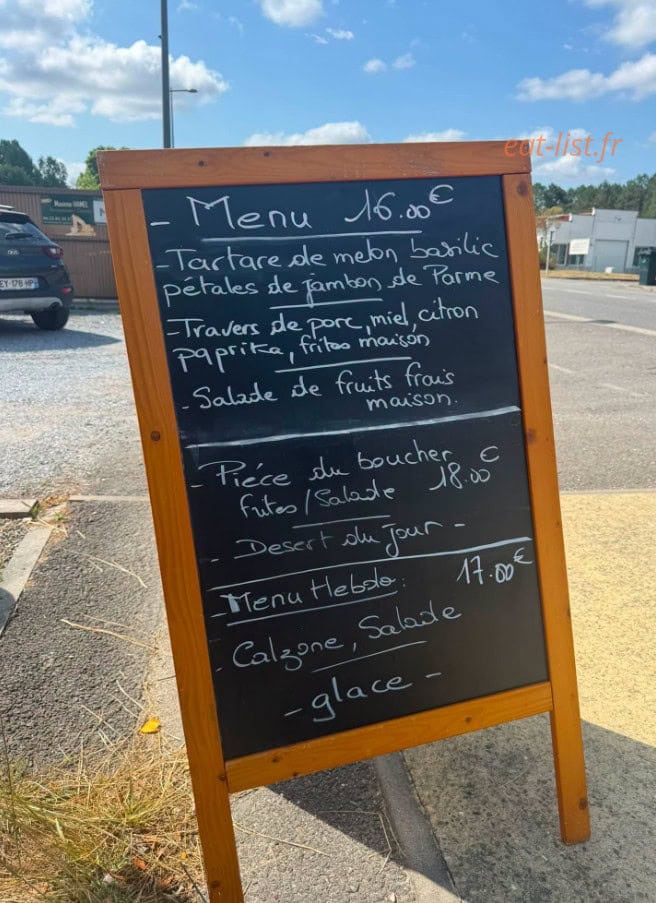 eat-list.fr
- Menu 16.00€
- Tartare de melon basilic
pétales de jambon de Parme
- Travers de porc, miel, citron
paprika, frites maison
- Salade de fruits frais
maison.
- Piéce du boucher €
frites / Salade 18.00
- Desert du jour -
- Menu Hebdo : 17.00€
- Calzone, Salade
- glace -
EY-178-HP